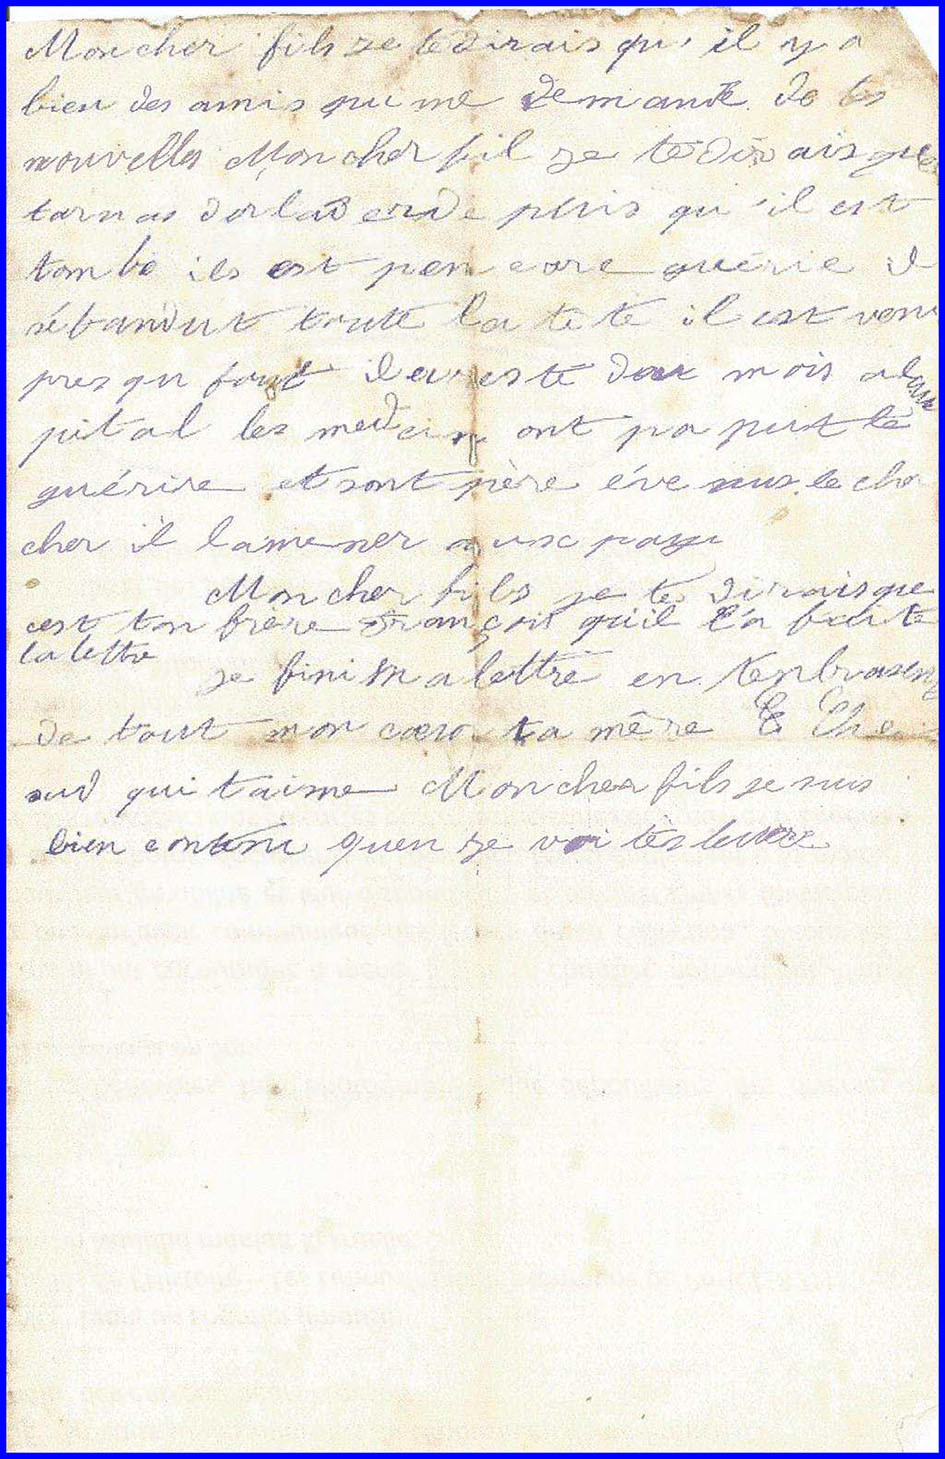 Mon cher fils je te dirais qu'il y a
bien des amis qu me demante de tes
nouvelles Mon cher fil je te dirais que
tarnas dorlaberde puis qu'il est
tombé ils est pen core guérie il
répandut toute la tete il est venu
presqu fout il eu resté deux mois a lau
pital les medcin ont pa put le
guérire et sont père éve nus le cher
cher il lamener aux pays
Mon cher fils je te dirais que
cest ton frère François quil la faite
la lettre
je fini ma lettre en tenbrasent
de tout mon cœur ta mère
sud qui taime Mon cher fils je sus
bien contenu quen je voi tés lettre